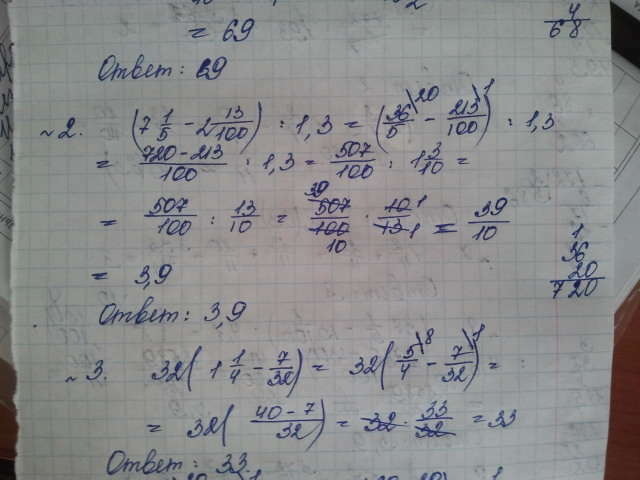 = 69
4
68
Ответ: 69
№2. (7 1/5 - 2 13/100) : 1,3 = (36/5 \20 - 213/100 \1) : 1,3
= 720-213/100 : 1,3 = 507/100 : 1 3/10 =
= 507/100 : 13/10 = 39 507/100 10 · 10 1/13 1 = 39/10
= 3,9
1
36
20
720
Ответ: 3,9
№3. 32( 1 1/4 - 7/32) = 32( 5/4 \8 - 7/32 \1) =
= 32( 40-7/32) = 32 · 33/32 = 33
Ответ: 33